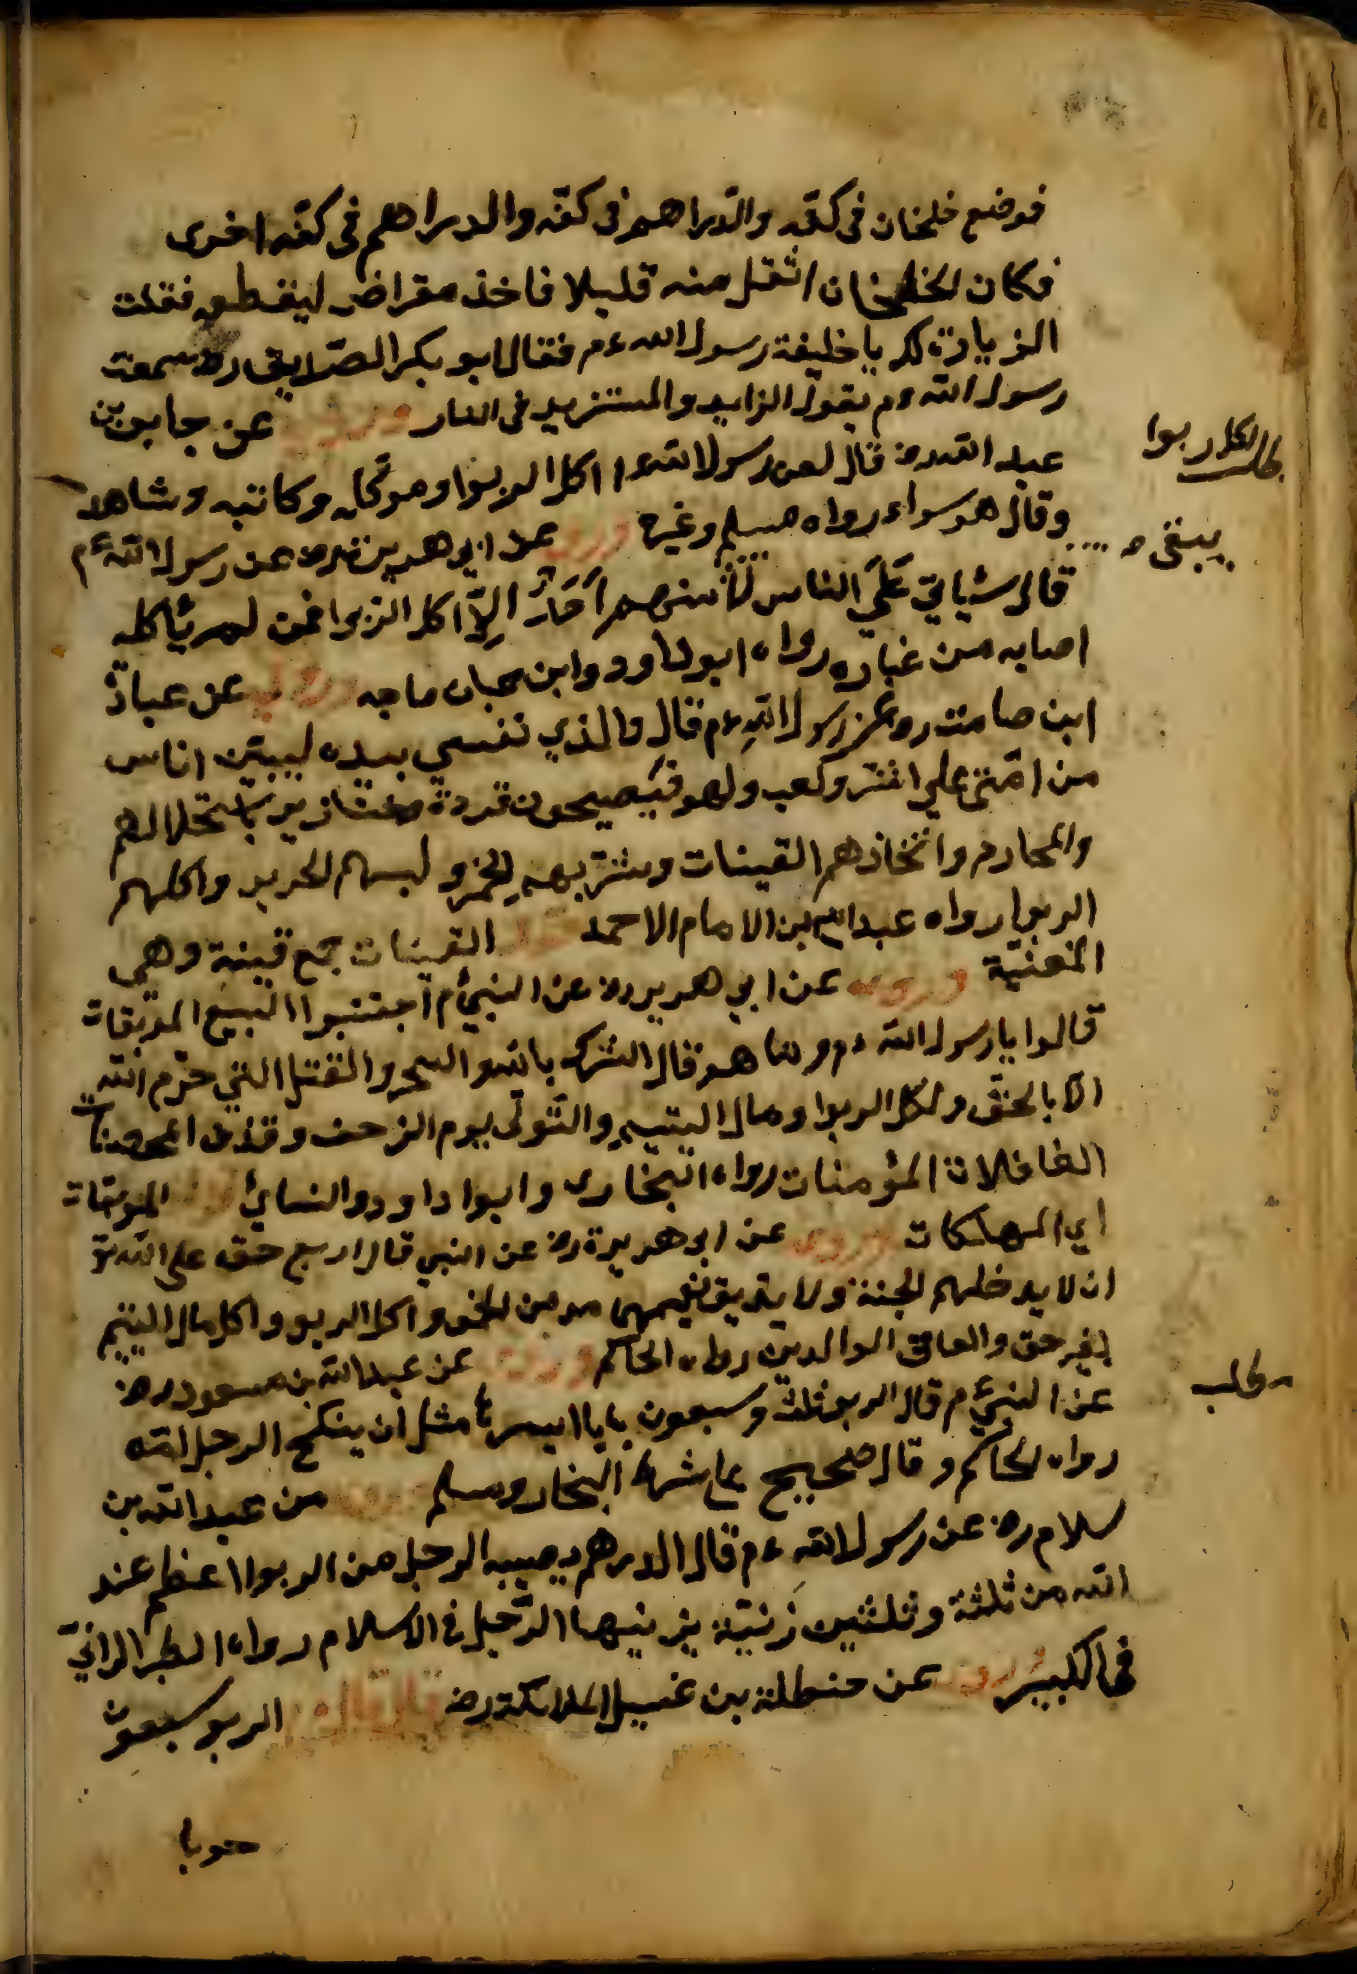 فوضع خلخان في كفه والدراهم في كفه والدراهم في كفه اخرى
فكان الخلخان اثقل منه قليلا فاخذ مقراض ليقطع فقلت
الزيادة لك يا خليفة رسول الله ءم فقال ابو بكر الصديق رض سمعت
رسول الله ءم يقول الزايد والمستزيد في النار وروي عن جابر بن
عبد الله رض قال لعن رسول الله اكل الربوا وموكله وكاتبه وشاهد
وقال هم سواء رواه مسلم وغيره وروي عن ابي هريرة رض عن رسول الله ءم
قال سياتي على الناس لا منهم احد الا اكل الربوا فمن لم ياكله
اصابه من غباره رواه ابو داود وابن ماجه وروي عن عبادة
ابن صامت رض عن رسول الله ءم قال والذي نفسي بيده ليبيتن اناس
من امتي على اشر ولعب ولهو فيصيحون قردة وخنازير باستحلالهم
والمحارم واتخاذهم القينات وشربهم الخمر ولبسهم الحرير واكلهم
الربوا رواه عبد الله بن الامام الاحمد القينات جمع قينة وهي
المغنية وروي عن ابي هريره رض عن النبي ءم اجتنبوا السبع الموبقات
قالوا يا رسول الله ءم وما هو قال الشرك بالله والسحر والقتل التي حرم الله
الا بالحق واكل الربوا ومال اليتيم والتولى يوم الزحف وقذف المحصنات
الغافلات المؤمنات رواه البخاري وابوا داود والنسائي الموبقات
اي المهلكات وروي عن ابي هريرة رض عن النبي قال اربع حق على الله تع
ان لا يدخلهم الجنة ولا يذيق نعيمها مدمن الخمر واكل الربو واكل مال اليتيم
بغير حق والعاق الوالدين رواه الحاكم وروي عن عبد الله بن مسعود رض
عن النبي ءم قال الربو ثلث وسبعون بابا ايسرها مثل ان ينكح الرجل امه
رواه الحاكم وقال صحيح على شرط البخار ومسلم وروي عن عبد الله بن
سلام رض عن رسول الله ءم قال الدرهم يصيبه الرجل من الربوا اعظم عند
الله من ثلثة وثلثين زنية يزنيها الرجل في الاسلام رواه الطبراني
في الكبير وروي عن حنظلة بن غسيل الملائكة رض الربو سبعون
حوبا
مطلب اكل ربوا
يبقى
مطلب